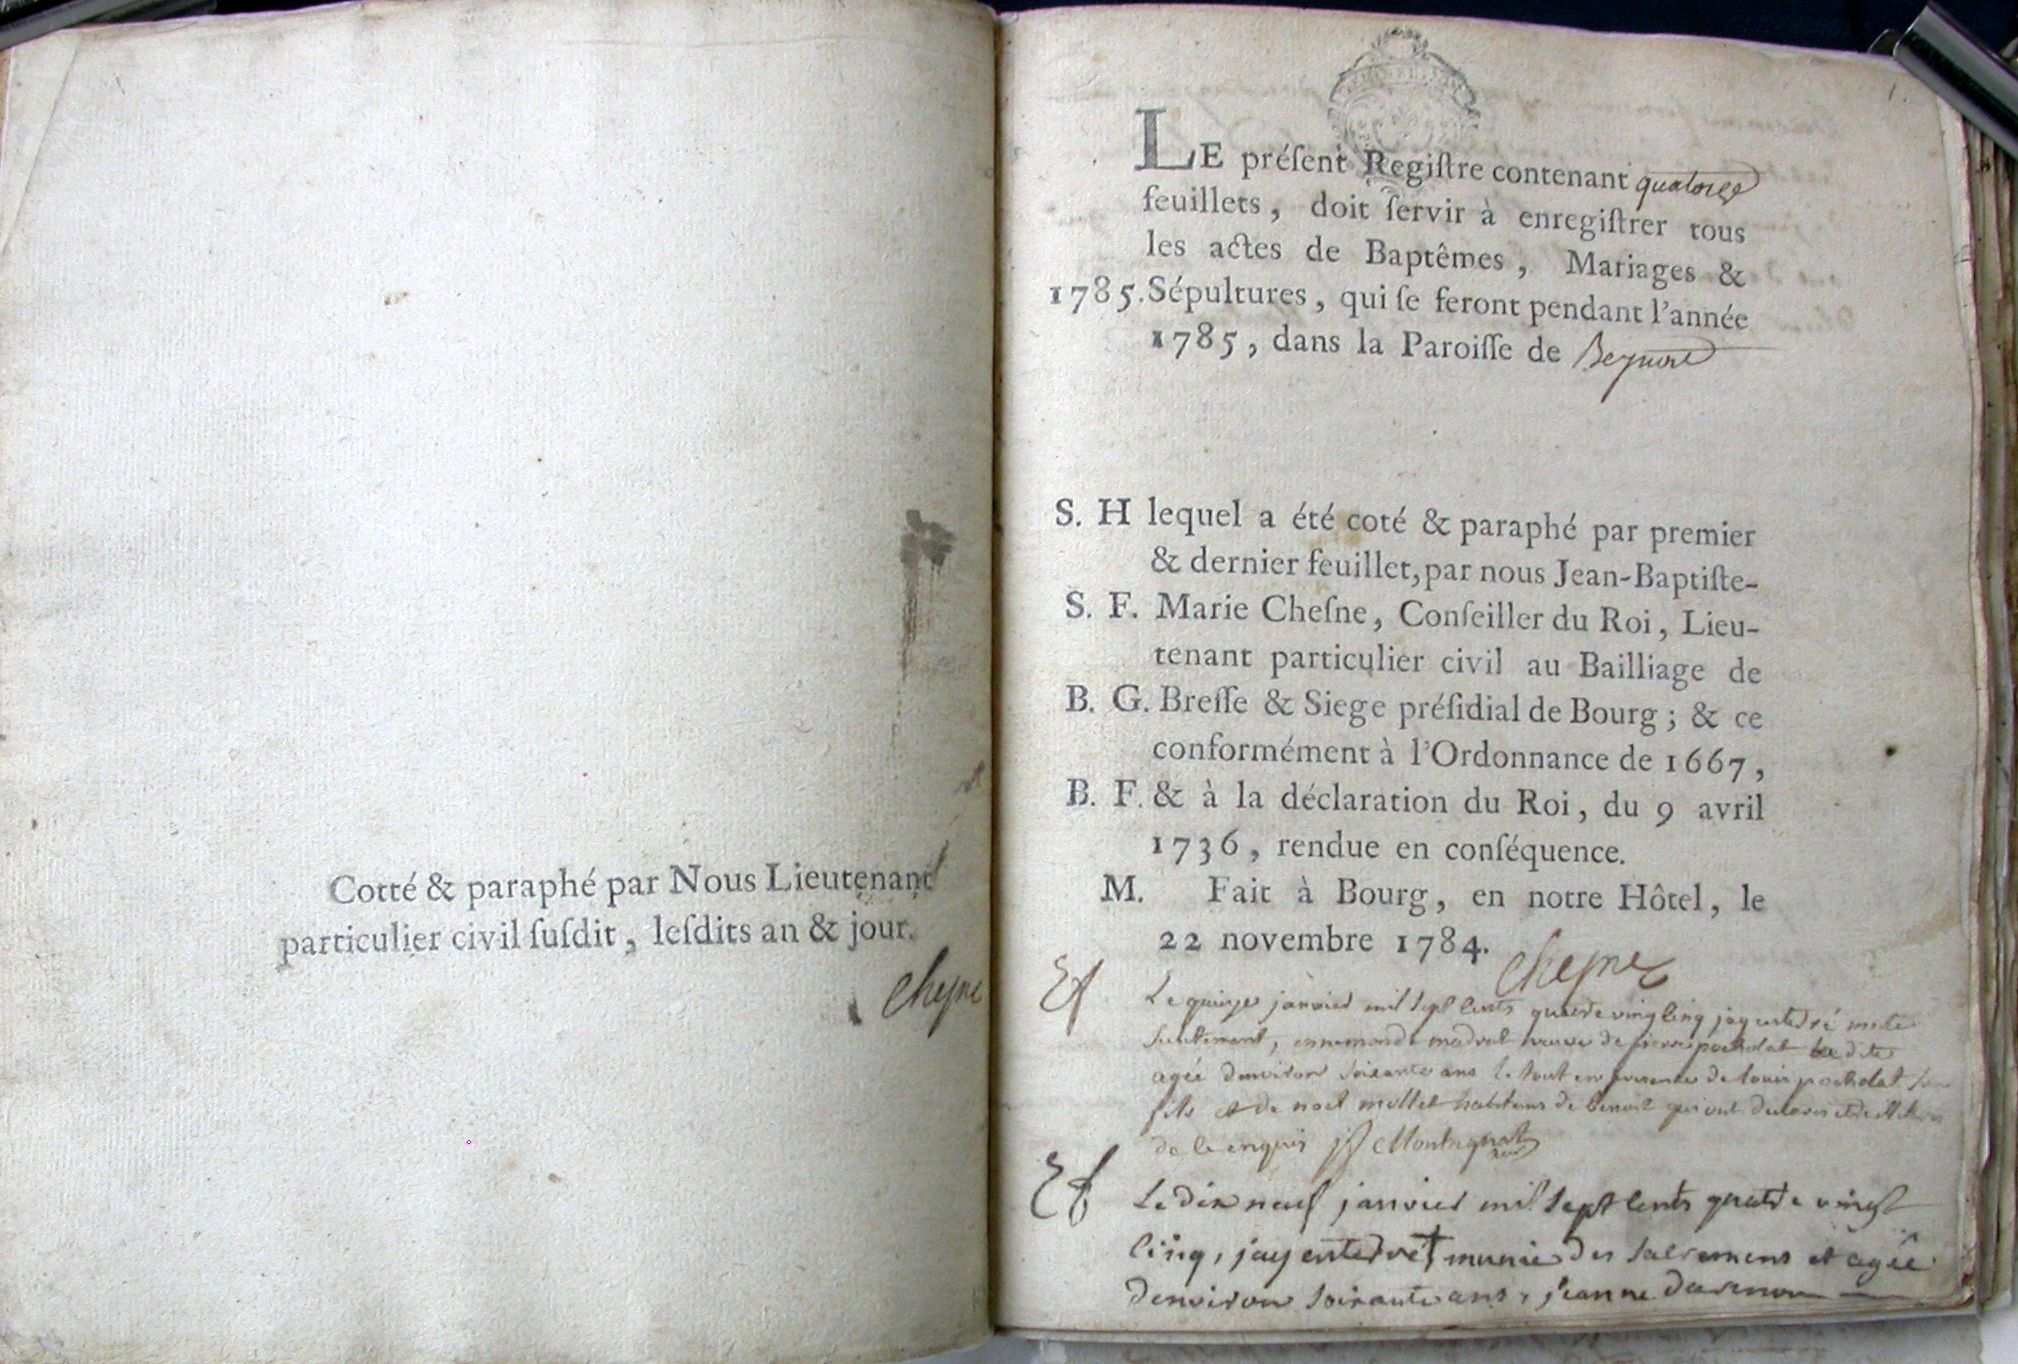 Cotté & paraphé par Nous Lieutenant
particulier civil ſuſdit, leſdits an & jour.
Chesne
1.
LE préſent Regiſtre contenant quatorze
feuillets, doit ſervir à enregiſtrer tous
les actes de Baptêmes, Mariages &
1785. Sépultures, qui ſe feront pendant l'année
1785, dans la Paroiſſe de
S. H lequel a été coté & paraphé par premier
& dernier feuillet, par nous Jean-Baptiſte-
S. F. Marie Cheſne, Conſeiller du Roi, Lieu-
tenant particulier civil au Bailliage de
B. G. Breſſe & Siege préſidial de Bourg; & ce
conformément à l'Ordonnance de 1667,
B. F. & à la déclaration du Roi, du 9 avril
1736, rendue en conſéquence.
M. Fait à Bourg, en notre Hôtel, le
22 novembre 1784.
Chesne
Le quinze janvier mil sept cents quatre ving cinq jay enterré
veuve de pierre pocholat
agée denviron soixante ans le tout en presence de louis pocholat
fils et de noel mollet habitans de
de ce enquis
Le dix neuf janvier mil sept cents quatre vingt
cinq, jay enterré munie des sacremens et agée
denviron soixante ans, jeanne